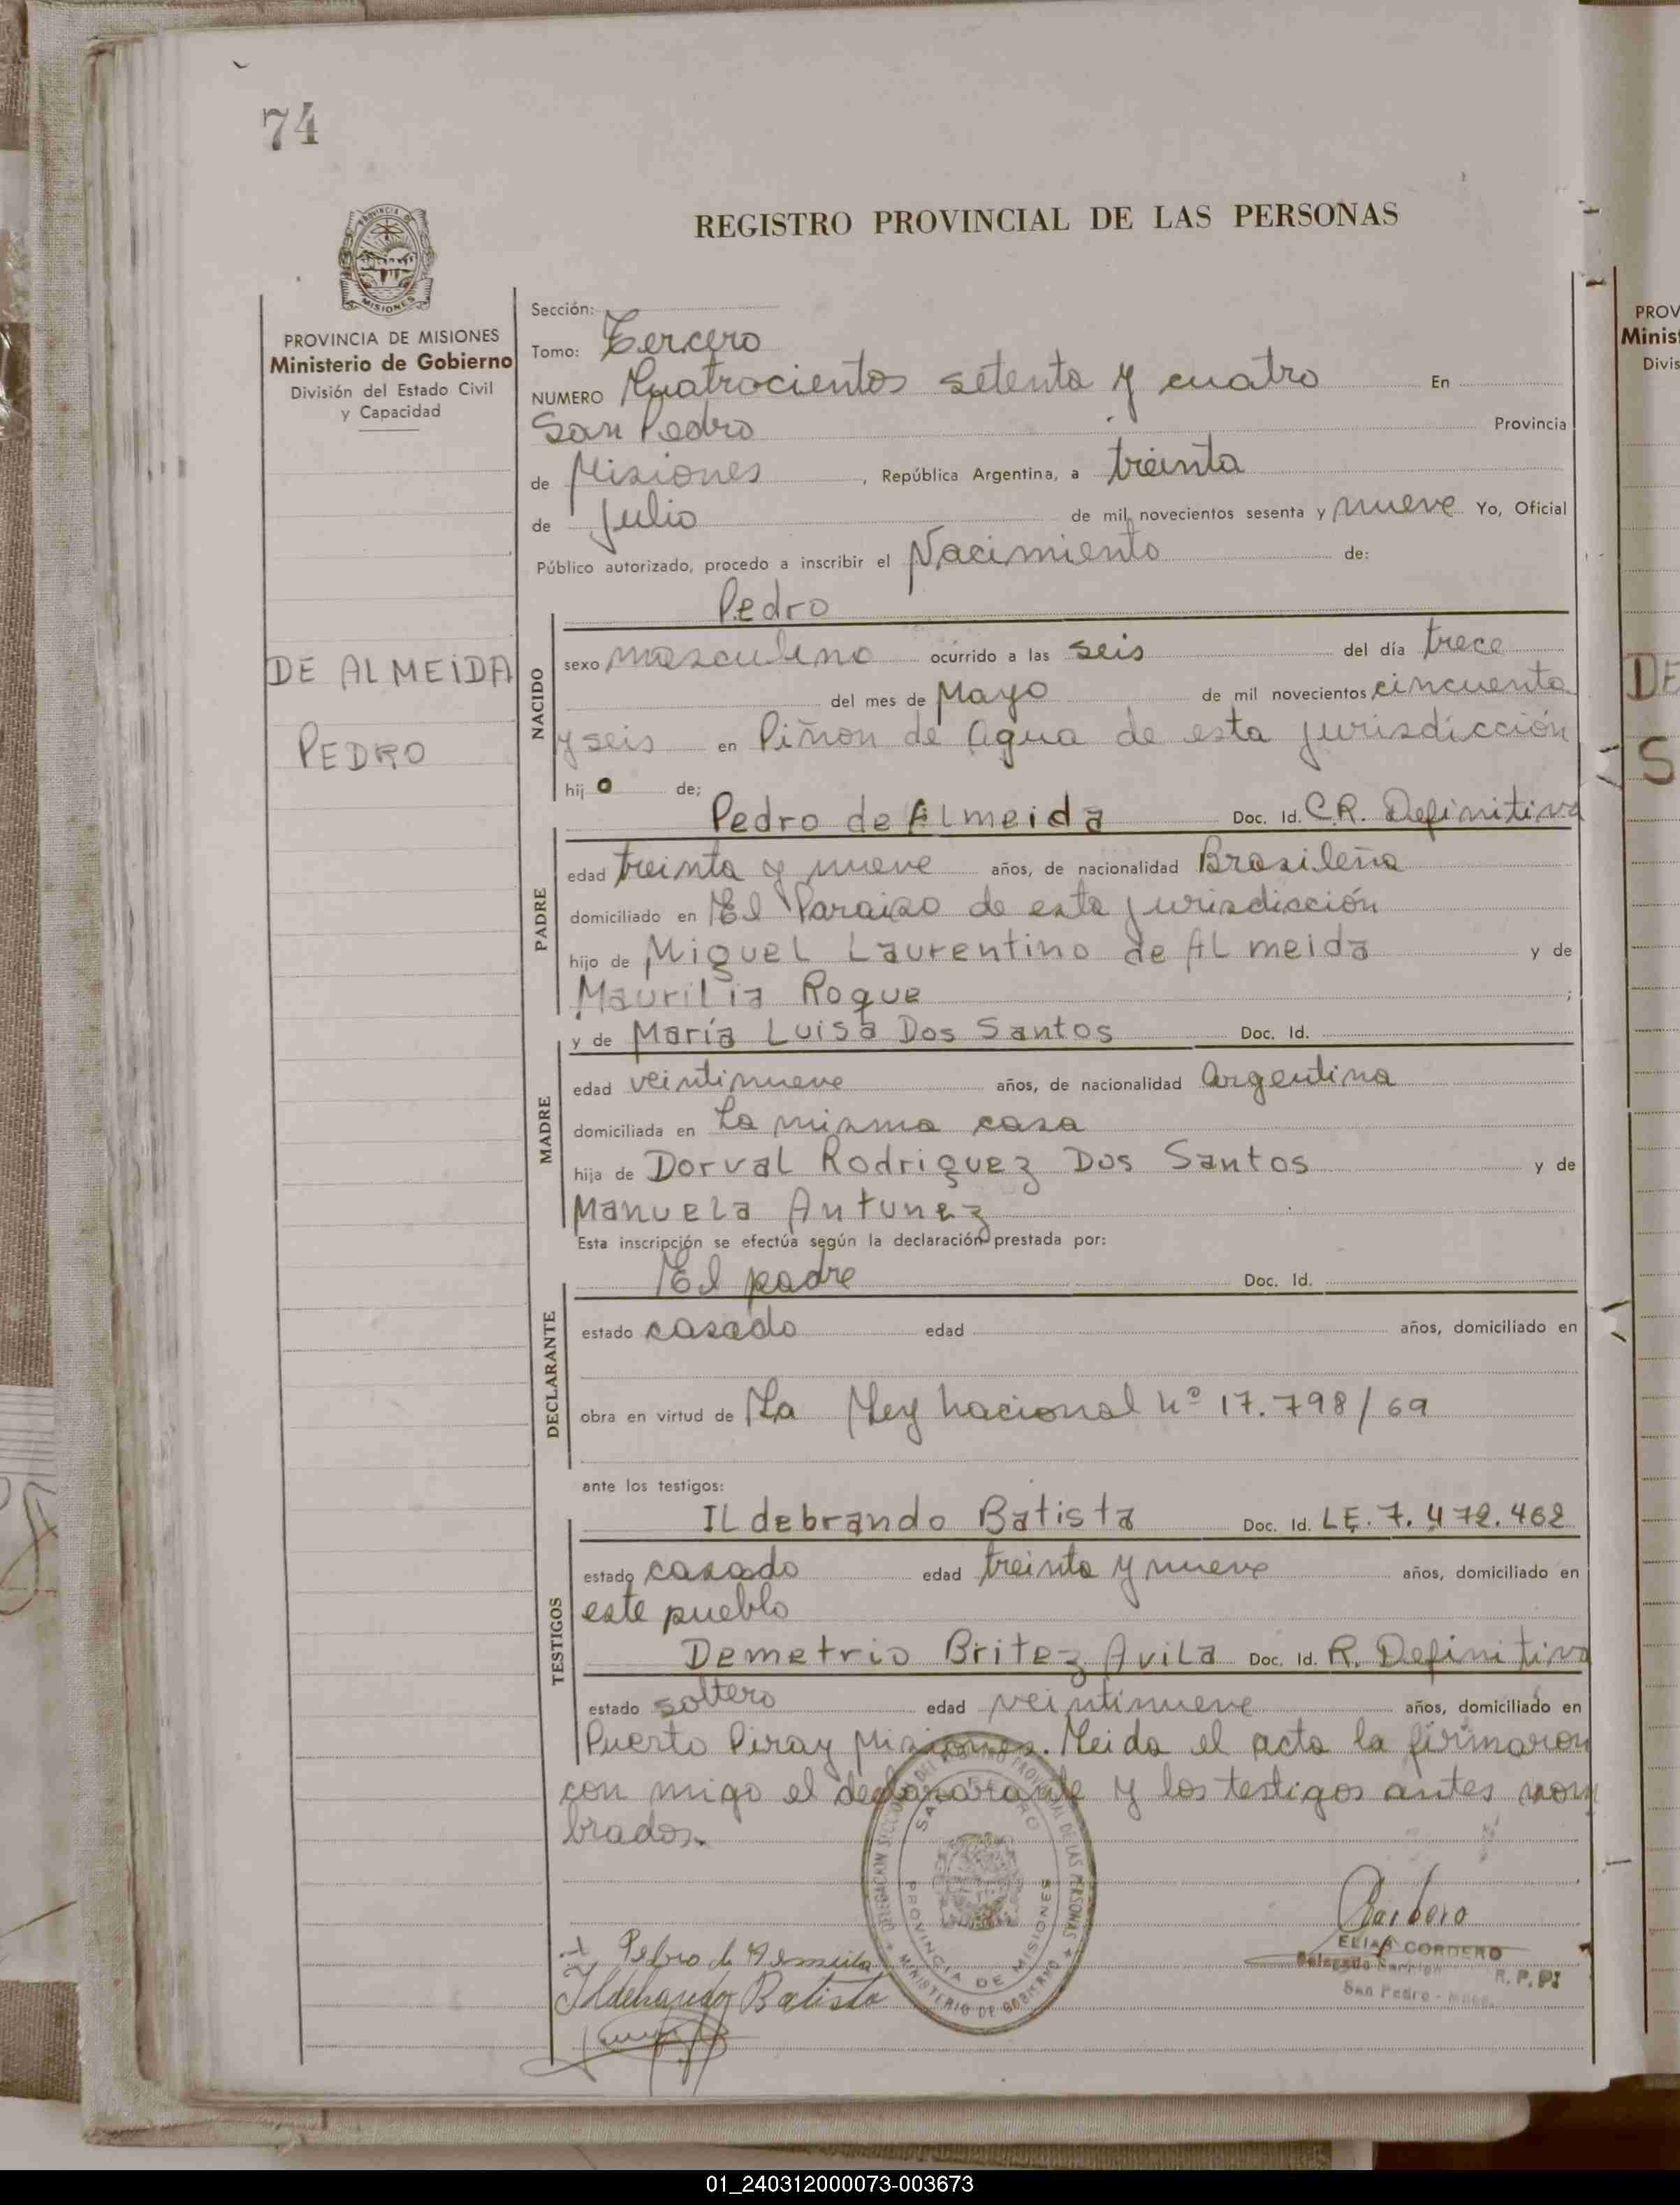 74
REGISTRO PROVINCIAL DE LAS PERSONAS
PROVINCIA DE MISIONES
Ministerio de Gobierno
División del Estado Civil
y Capacidad
DE ALMEIDA
PEDRO
Sección:
Tomo: Tercero
NUMERO Cuatrocientos setenta y cuatro En
San Pedro Provincia
de Misiones, República Argentina, a treinta
de Julio de mil novecientos sesenta y nueve Yo, Oficial
Público autorizado, procedo a inscribir el Nacimiento de:
Pedro
NACIDO
sexo masculino ocurrido a las seis del día trece
del mes de Mayo de mil novecientos cincuenta
y seis en Piñon de Agua de esta jurisdicción
hijo de;
Pedro de Almeida Doc. Id. C.R. Definitiva
PADRE
edad treinta y nueve años, de nacionalidad Brasileña
domiciliado en El Paraiso de esta jurisdicción
hijo de Miguel Laurentino de Almeida y de
Maurilia Roque ;
y de María Luisa Dos Santos Doc. Id.
MADRE
edad veintinueve años, de nacionalidad Argentina
domiciliada en La misma casa
hija de Dorval Rodriguez Dos Santos y de
Manuela Antunez
Esta inscripción se efectúa según la declaración prestada por:
El padre Doc. Id.
DECLARANTE
estado casado edad años, domiciliado en
obra en virtud de La Ley nacional nº 17.798/69
ante los testigos:
ILdebrando Batista Doc. Id. LE. 7.472.462
TESTIGOS
estado casado edad treinta y nueve años, domiciliado en
este pueblo
Demetrio Britez Avila Doc. Id. R. Definitiva
estado soltero edad veintinueve años, domiciliado en
Puerto Piray Misiones. Leida el acta la firmaron
con migo el declararante y los testigos antes nom
brados.
SAN PEDRO
PROVINCIA DE MISIONES
MINISTERIO DE GOBIERNO
Pedro de Almeida
Ildebrando Batista
ELIAS CORDERO
R.P.P.
San Pedro - Mnes.
PROV
Minis
Divis
DE
S
01_240312000073-003673